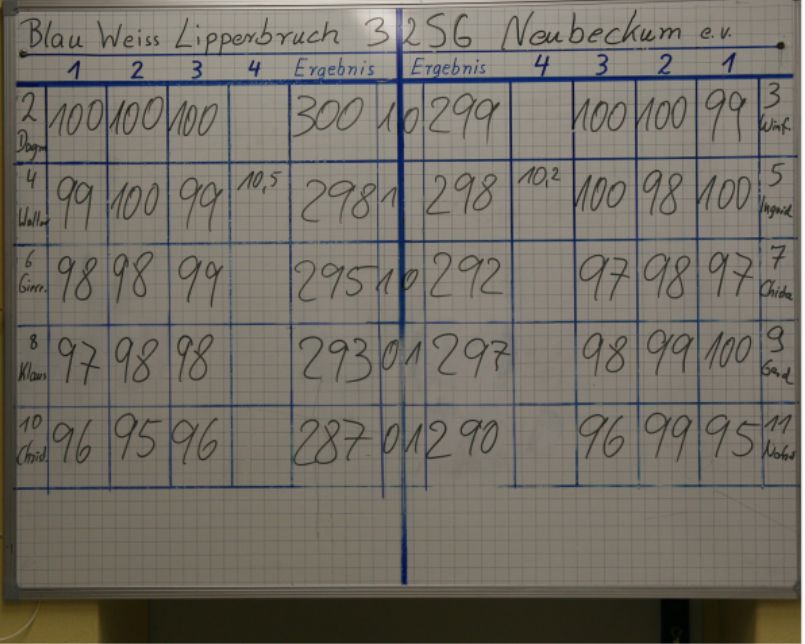 Blau Weiss Lipperbruch 3 2 SG Neubeckum e.v.
1 2 3 4 Ergebnis Ergebnis 4 3 2 1
2 100 100 100 300 1 0 299 100 100 99 3
Dagm Winf.
4 99 100 99 10,5 298 1 298 10,2 100 98 100 5
Ingrid
6 98 98 99 295 1 0 292 97 98 97 7
8 97 98 98 293 0 1 297 98 99 100 9
Klaus Gerd
10 96 95 96 287 0 1 290 96 99 95 11